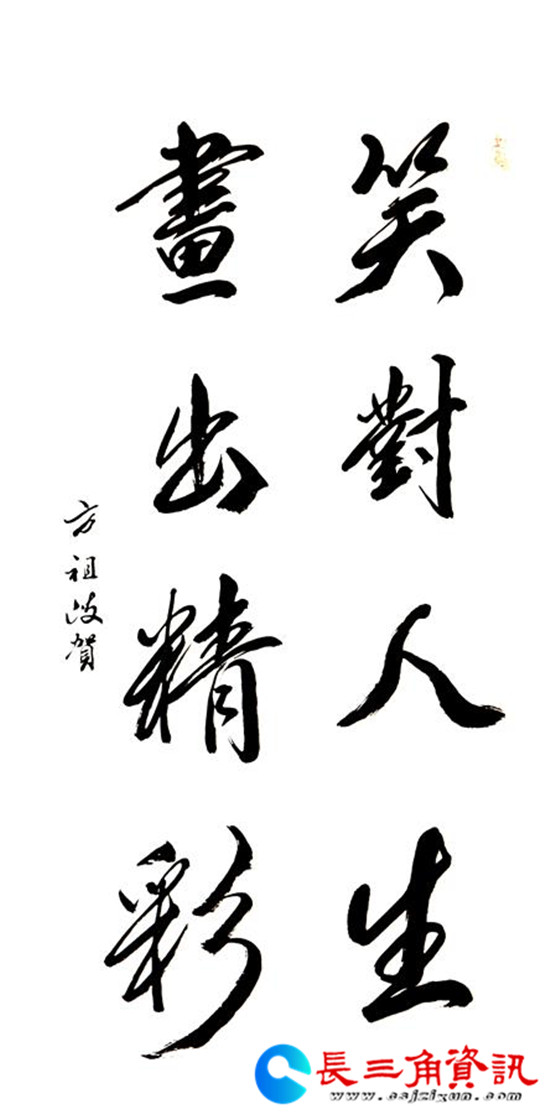 笑對人生
畫出精彩
方祖岐賀
長三角資訊
www.csjzixun.com